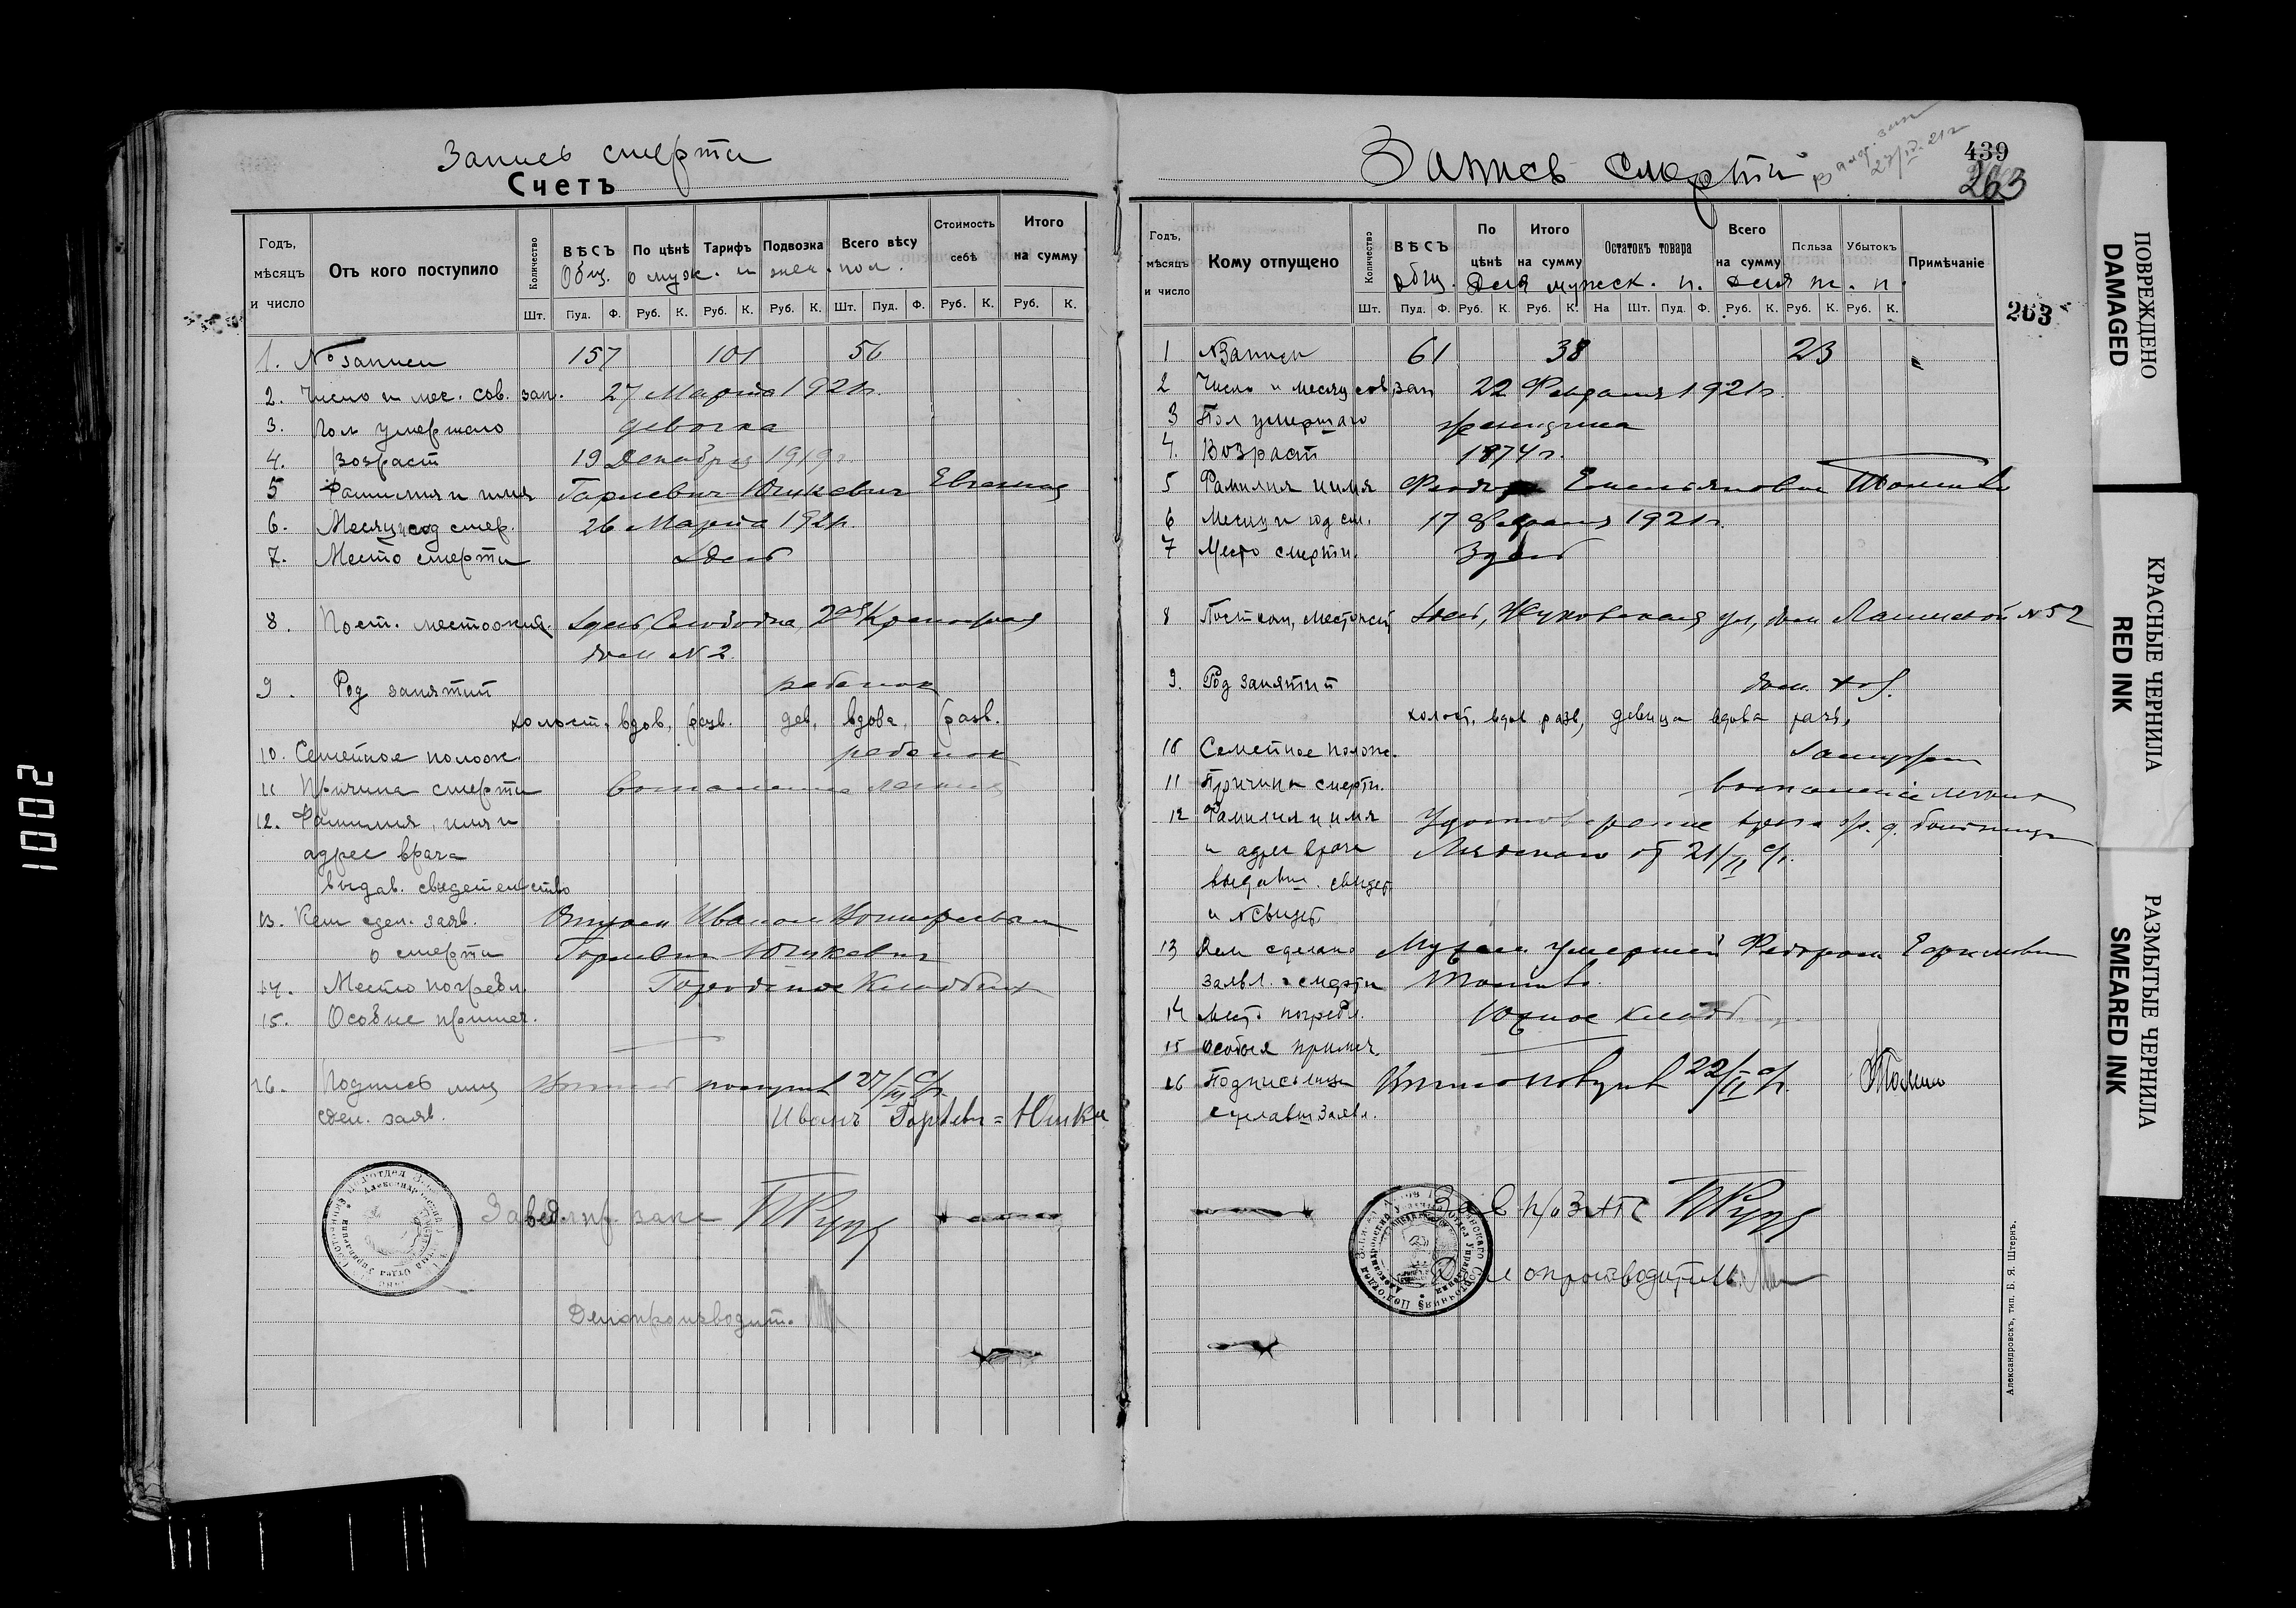 Запись смерти
Счетъ
Годъ, мѣсяцъ и число
Отъ кого поступило
Количество
ВѢСЪ
По цѣнѣ
Тарифъ
Подвозка
Всего вѣсу
Стоимость себѣ
Итого на сумму
Общ. о муж. и жен. пол.
Шт. Пуд. Ф. Руб. К. Руб. К. Руб. К. Шт. Пуд. Ф. Руб. К. Руб. К.
1. № записи 157 101 56
2. Число и мес. сов. зап. 27 Марта 1921г.
3. Пол умершего девочка
4. Возраст 19 Декабря 1919г.
5 Фамилия и имя Горлевич Юшкевич Евгения
6. Месяц и год смер. 26 Марта 192
7. Место смерти Здесь
8. Пост. местожит. Здесь Слободка, 2ая
дом N 2
9. Род занятий ребенок
холост, вдов, разв. дев, вдова, разв.
10. Семейное полож. ребенок
11 Причина смерти воспаление легких
12. Фамилия, имя и
адрес врача
выдав. свидетельство
13. Кем сдел. заяв. Отцом Иваном
о смерти Горлевич Юшкевич
14. Место погребл. Городское Кладбище
15. Особые примеч.
16. Подпись лиц 27/III с/г.
сдел. заяв. Иванъ
Завед. п/ загс
Делопроизводит.
Запись смерти
23/IV 21г
439
263
Годъ, мѣсяцъ и число
Кому отпущено
Количество
ВѢСЪ
По цѣнѣ
Итого на сумму
Остатокъ товара
Всего на сумму
Польза
Убытокъ
Примѣчаніе
общ. Для мужск. п. для ж. п.
Шт. Пуд. Ф. Руб. К. Руб. К. На Шт. Пуд. Ф. Руб. К. Руб. К. Руб. К.
263
1 №Записи 61 38 23
2 Число и месяц сов зап 22 Февраля 1921г.
3 Пол умершаго женщина
4. Возраст 1874г.
5 Фамилия и имя Емельяновна
6 Месяц и год см. 17 Февраля 1921г.
7 Место смерти. Здесь
8 Постоян, местожит Здесь, Жуковская ул, дом N 52
9. Род занятий дом. хоз.
холост, вдов разв, девица вдова разв,
10 Семейное полож. Замужем
11 Причина смерти. воспаление легких
12 Фамилия и имя Удостоверение врача
и адрес врача от 21/II с/г.
выдавш. свидет.
и № свидет
13 Кем сделано Мужем умершей Федором
заявл. о смерти
14 Мест. погребл. Южное кладб.
15 Особыя примеч.
16 Подпись лица 22/II с/г.
сделавш заявл.
Зав п/о ЗАГС
Делопроизводитель
Александровскъ, тип. Б. Я. Штернъ.
ПОВРЕЖДЕНО
DAMAGED
КРАСНЫЕ ЧЕРНИЛА
RED INK
РАЗМЫТЫЕ ЧЕРНИЛА
SMEARED INK
1002